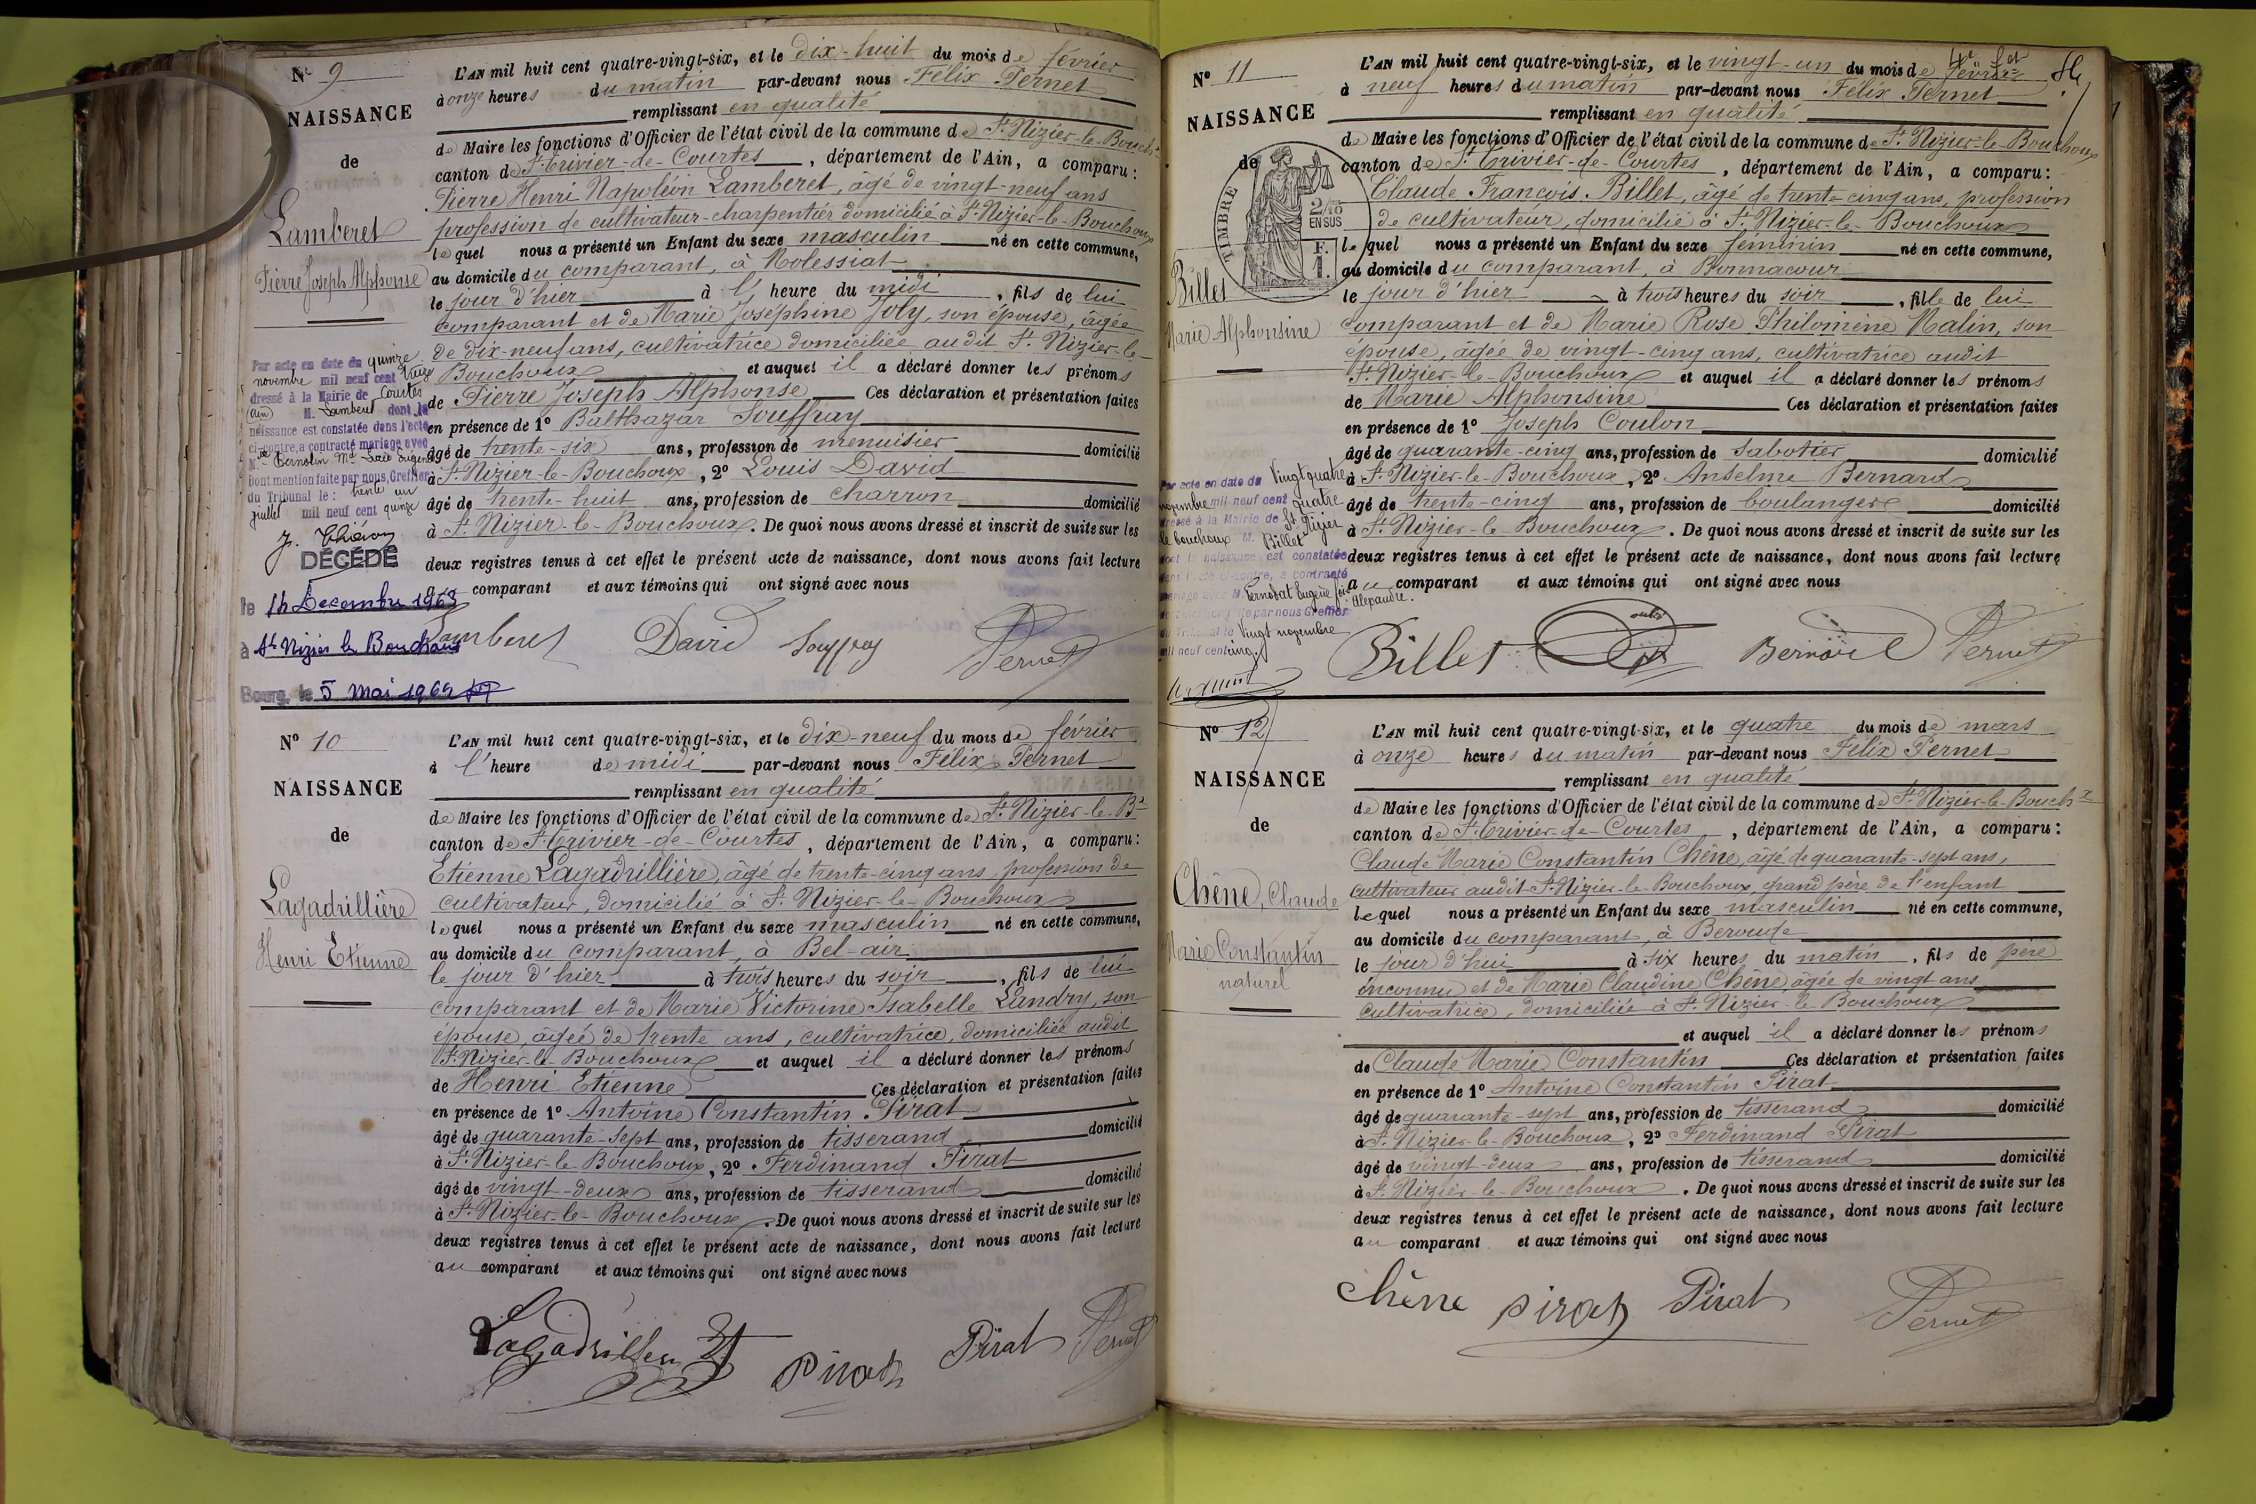 N° 9
NAISSANCE
de
Lamberet
Pierre Joseph Alphonse
L'AN mil huit cent quatre-vingt-six, et le dix-huit du mois de février
à onze heures du matin par-devant nous Félix Pernet
remplissant en qualité
de Maire les fonctions d'Officier de l'état civil de la commune de St Nizier-le-Bouch
canton de St Trivier-de-Courtes, département de l'Ain, a comparu:
Pierre Henri Napoléon Lamberet, âgé de vingt-neuf ans
profession de cultivateur-charpentier domicilié à St Nizier-le-Bouchoux
lequel nous a présenté un Enfant du sexe masculin né en cette commune,
au domicile du comparant, à Molessiat
le jour d'hier à l' heure du midi, fils de lui
comparant et de Marie Joséphine Joly, son épouse, âgée
de dix-neuf ans, cultivatrice domiciliée audit St Nizier-le-
Bouchoux et auquel il a déclaré donner les prénoms
de Pierre Joseph Alphonse Ces déclaration et présentation faites
en présence de 1° Balthazar Souffray
âgé de trente-six ans, profession de menuisier domicilié
à St Nizier-le-Bouchoux, 2° Louis David
âgé de trente-huit ans, profession de charron domicilié
à St Nizier-le-Bouchoux. De quoi nous avons dressé et inscrit de suite sur les
deux registres tenus à cet effet le présent acte de naissance, dont nous avons fait lecture
comparant et aux témoins qui ont signé avec nous
Lamberet David Souffray Pernet
Par acte en date du quinze
novembre mil neuf cent treize
dressé à la Mairie de Courtes
(Ain) M. Lamberet dont la
naissance est constatée dans l'acte
ci-contre, a contracté mariage avec
Mlle Bernolin
Dont mention faite par nous, Greffier
du Tribunal le: trente un
juillet mil neuf cent quinze
DÉCÉDÉ
le 14 Décembre 1968
à St Nizier le Bouchoux
Bourg, le 5 Mai 1969
N° 10
NAISSANCE
de
Lagadrillière
Henri Etienne
L'AN mil huit cent quatre-vingt-six, et le dix-neuf du mois de février
à l'heure de midi par-devant nous Félix Pernet
remplissant en qualité
de Maire les fonctions d'Officier de l'état civil de la commune de St Nizier-le-Bx
canton de St Trivier-de-Courtes, département de l'Ain, a comparu:
Etienne Lagadrillière, âgé de trente-cinq ans, profession de
cultivateur, domicilié à St Nizier-le-Bouchoux
lequel nous a présenté un Enfant du sexe masculin né en cette commune,
au domicile du comparant, à Bel-air
le jour d'hier à trois heures du soir, fils de lui
comparant et de Marie Victorine Isabelle Landry, son
épouse, âgée de trente ans, cultivatrice, domiciliée audit
St Nizier-le-Bouchoux et auquel il a déclaré donner les prénoms
de Henri Etienne Ces déclaration et présentation faites
en présence de 1° Antoine Constantin Pirat
âgé de quarante-sept ans, profession de tisserand domicilié
à St Nizier-le-Bouchoux, 2° Ferdinand Pirat
âgé de vingt-deux ans, profession de tisserand domicilié
à St Nizier-le-Bouchoux. De quoi nous avons dressé et inscrit de suite sur les
deux registres tenus à cet effet le présent acte de naissance, dont nous avons fait lecture
au comparant et aux témoins qui ont signé avec nous
Pirat Pirat Pernet
N° 11
NAISSANCE
de
Billet
Marie Alphonsine
TIMBRE
2/10
EN SUS
F.
1.
L'AN mil huit cent quatre-vingt-six, et le vingt-un du mois de février
à neuf heures du matin par-devant nous Félix Pernet
remplissant en qualité
de Maire les fonctions d'Officier de l'état civil de la commune de St Nizier-le-Bouchoux
canton de St Trivier-de-Courtes, département de l'Ain, a comparu:
Claude François Billet, âgé de trente-cinq ans, profession
de cultivateur, domicilié à St Nizier-le-Bouchoux
lequel nous a présenté un Enfant du sexe féminin né en cette commune,
au domicile du comparant, à Bonnacour
le jour d'hier à trois heures du soir, fille de lui
comparant et de Marie Rose Philomène Malin, son
épouse, âgée de vingt-cinq ans, cultivatrice audit
St Nizier-le-Bouchoux et auquel il a déclaré donner les prénoms
de Marie Alphonsine Ces déclaration et présentation faites
en présence de 1° Joseph Coulon
âgé de quarante-cinq ans, profession de sabotier domicilié
à St Nizier-le-Bouchoux, 2° Anselme Bernard
âgé de trente-cinq ans, profession de boulanger domicilié
à St Nizier-le-Bouchoux. De quoi nous avons dressé et inscrit de suite sur les
deux registres tenus à cet effet le présent acte de naissance, dont nous avons fait lecture
au comparant et aux témoins qui ont signé avec nous
Billet Pernet
Par acte en date du vingt quatre
novembre mil neuf cent quatre
dressé à la Mairie de St Nizier
le bouchoux M. Billet
dont la naissance est constatée
dans l'acte ci-contre, a contracté
mariage avec M. Pernodat Eugène
Alexandre.
par nous Greffier
du Tribunal le vingt novembre
mil neuf cent cinq.
N° 12
NAISSANCE
de
Chêne, Claude
Marie Constantin
naturel
L'AN mil huit cent quatre-vingt-six, et le quatre du mois de mars
à onze heures du matin par-devant nous Félix Pernet
remplissant en qualité
de Maire les fonctions d'Officier de l'état civil de la commune de St Nizier-le-Bouchx
canton de St Trivier-de-Courtes, département de l'Ain, a comparu:
Claude Marie Constantin Chêne, âgé de quarante-sept ans,
cultivateur audit St Nizier-le-Bouchoux, grand père de l'enfant
lequel nous a présenté un Enfant du sexe masculin né en cette commune,
au domicile du comparant, à Beroude
le jour d'hui à six heures du matin, fils de père
inconnu et de Marie Claudine Chêne âgée de vingt ans
cultivatrice, domiciliée à St Nizier-le-Bouchoux
et auquel il a déclaré donner les prénoms
de Claude Marie Constantin Ces déclaration et présentation faites
en présence de 1° Antoine Constantin Pirat
âgé de quarante-sept ans, profession de tisserand domicilié
à St Nizier-le-Bouchoux, 2° Ferdinand Pirat
âgé de vingt-deux ans, profession de tisserand domicilié
à St Nizier-le-Bouchoux. De quoi nous avons dressé et inscrit de suite sur les
deux registres tenus à cet effet le présent acte de naissance, dont nous avons fait lecture
au comparant et aux témoins qui ont signé avec nous
Chêne Pirat Pirat Pernet